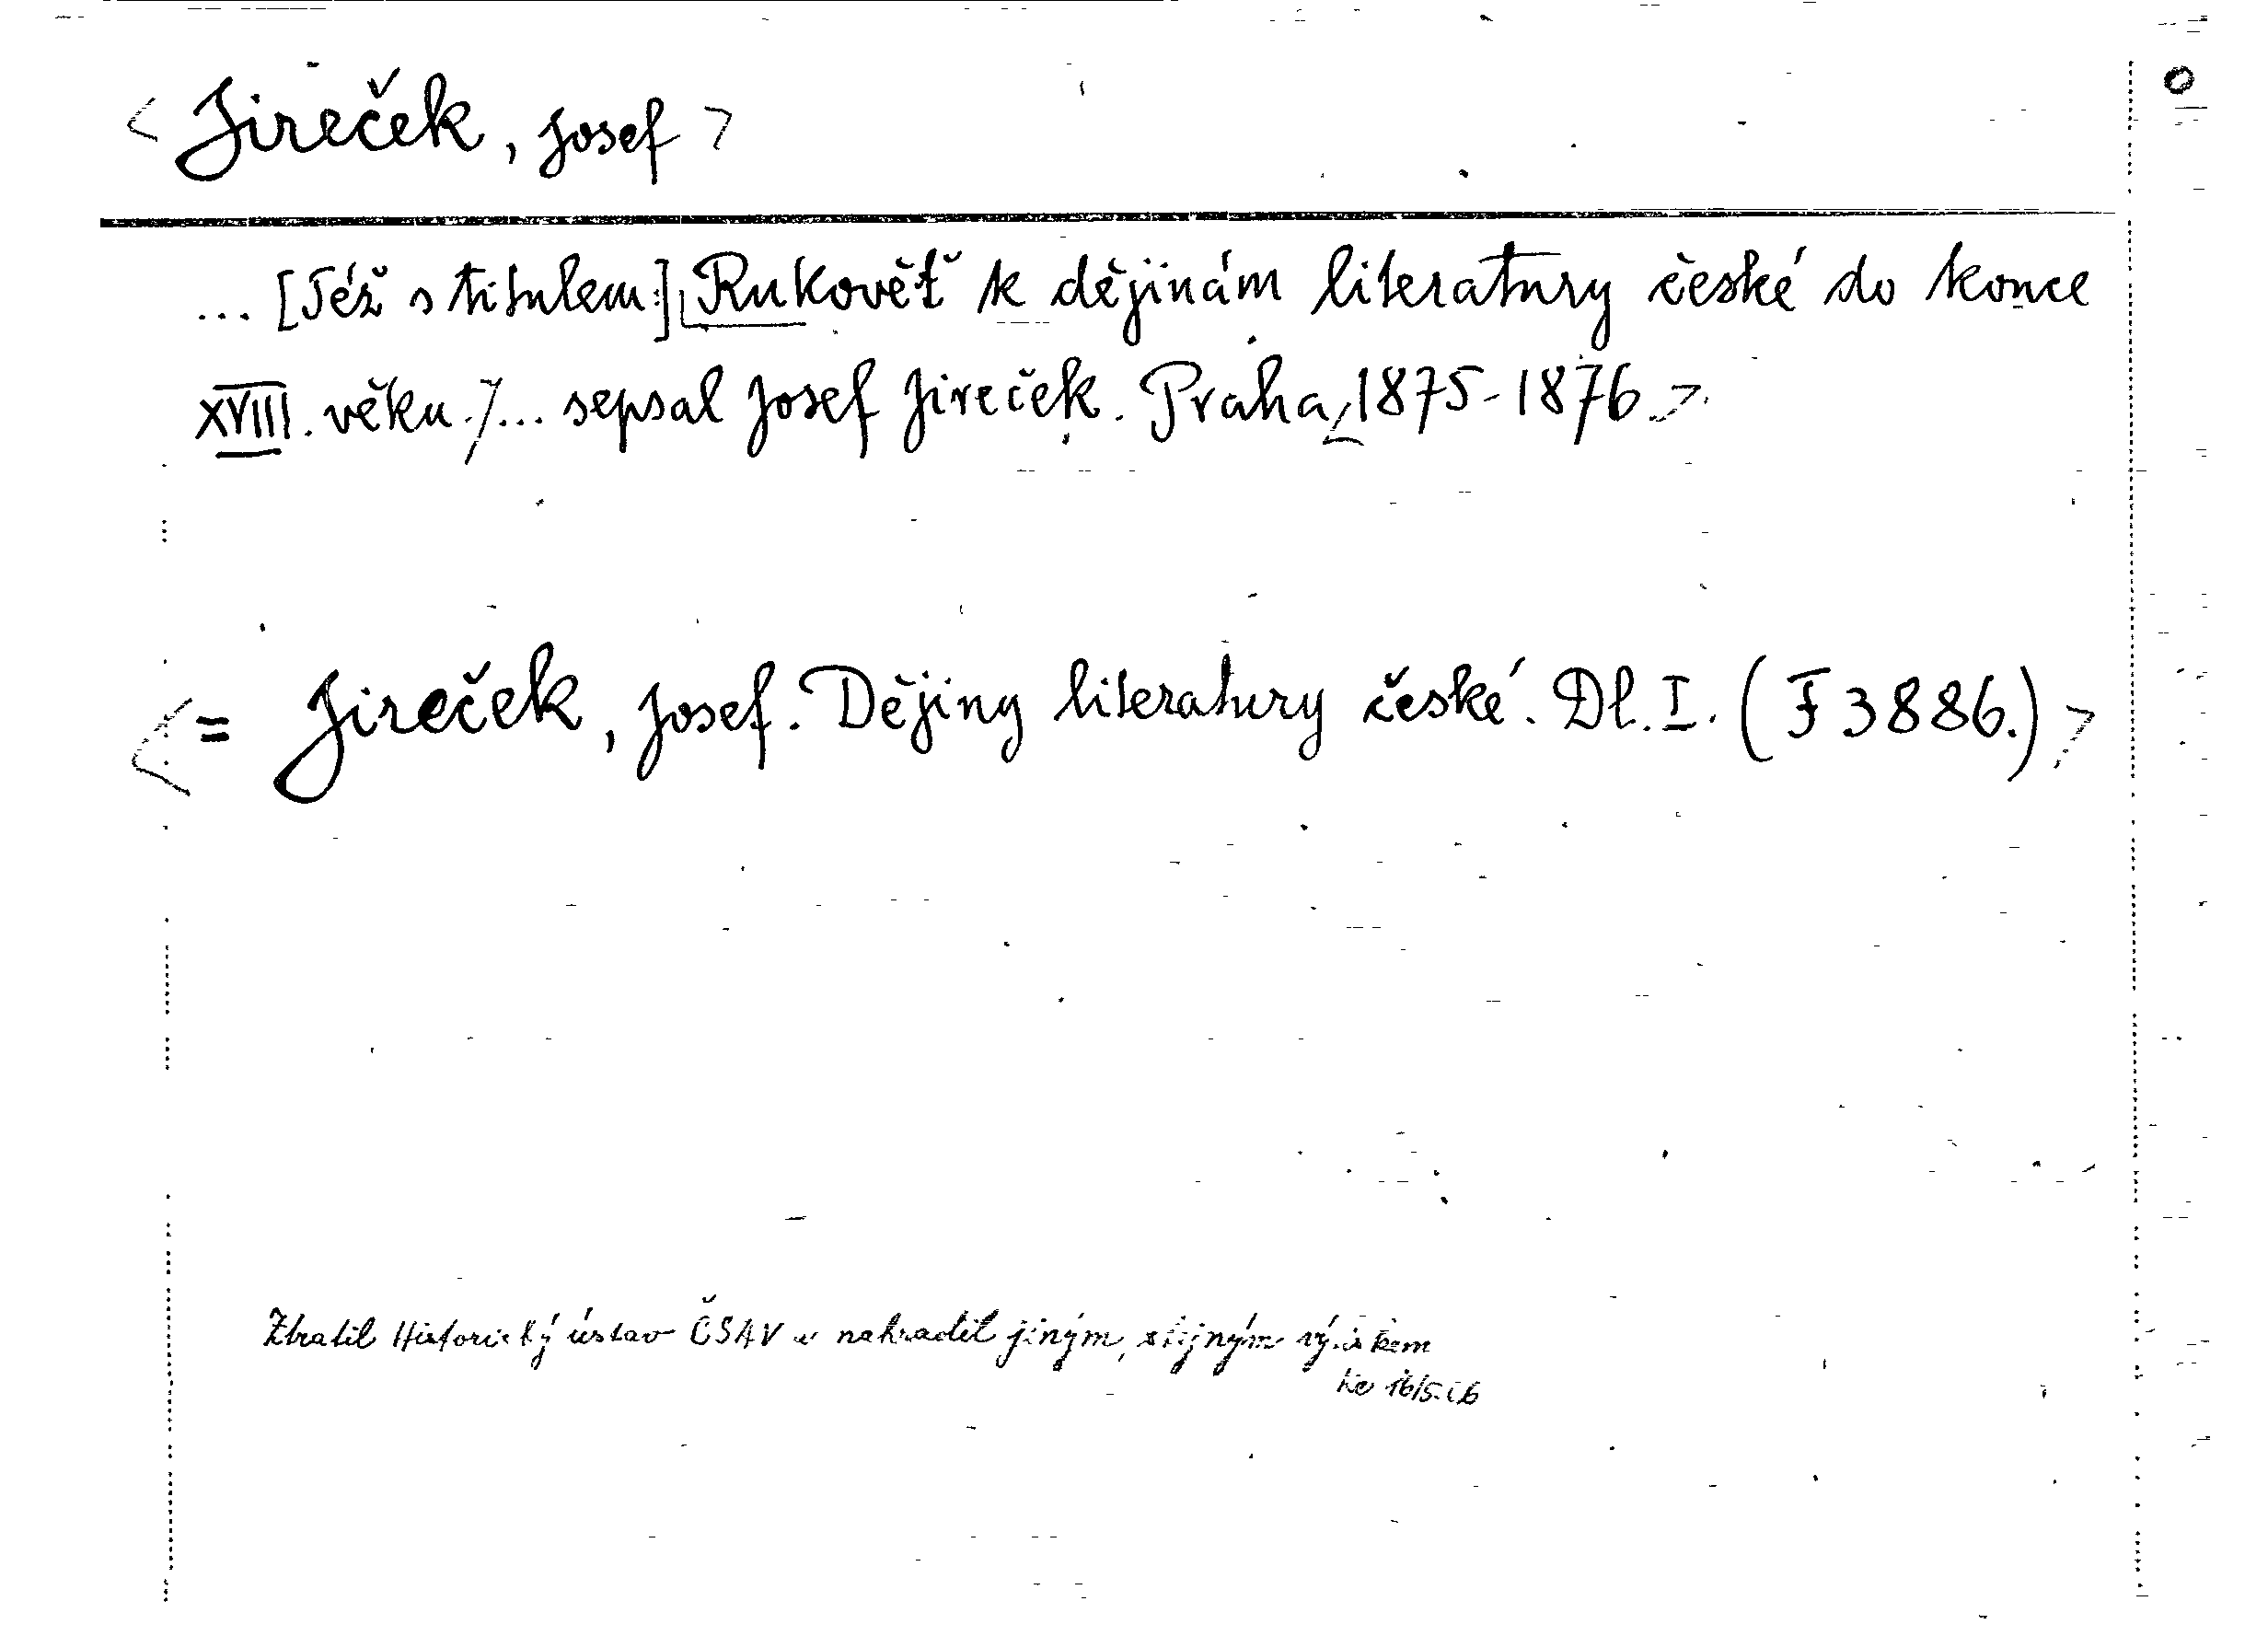 < Jireček, Josef >
... [Též s titulem:] Rukovět k dějinám literatury české do konce
XVIII. věku./... sepsal Josef Jireček. Praha, < 1875-1876. >
< = Jireček, Josef. Dějiny literatury české. Dl. I. (F 3886.) >
Ztratil Historický ústav ČSAV a nahradil jiným, stejným
16/5.